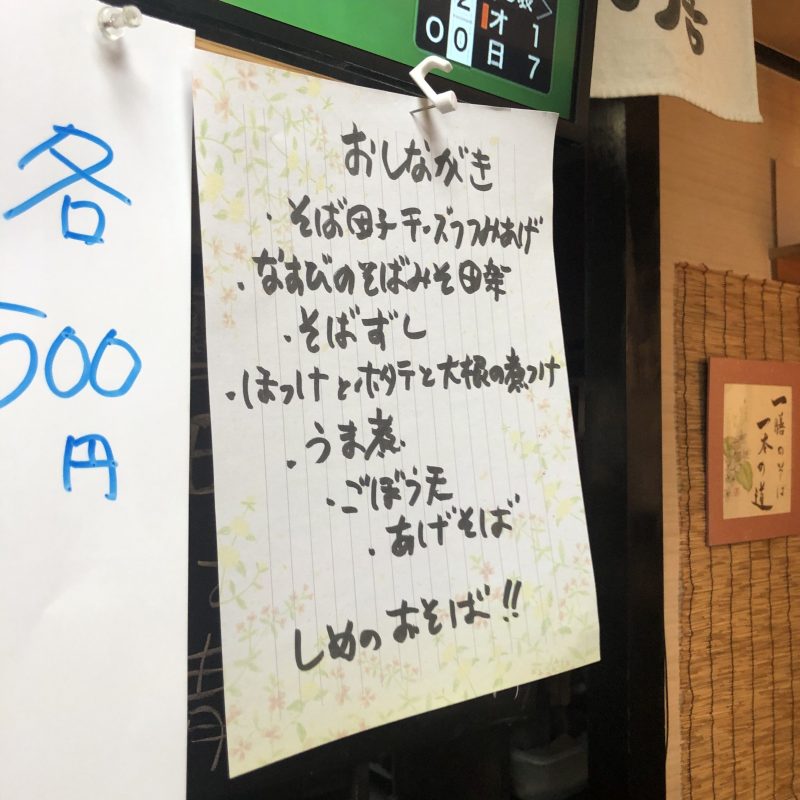 各
500
円
おしながき
・そば団子チーズつつみあげ
・なすびのそばみそ田楽
・そばずし
・ほっけとホタテと大根の煮つけ
・うま煮
・ごぼう天
・あげそば
しめのおそば!!
一膳のそば
一本の道
オ 1
0 0 日 7